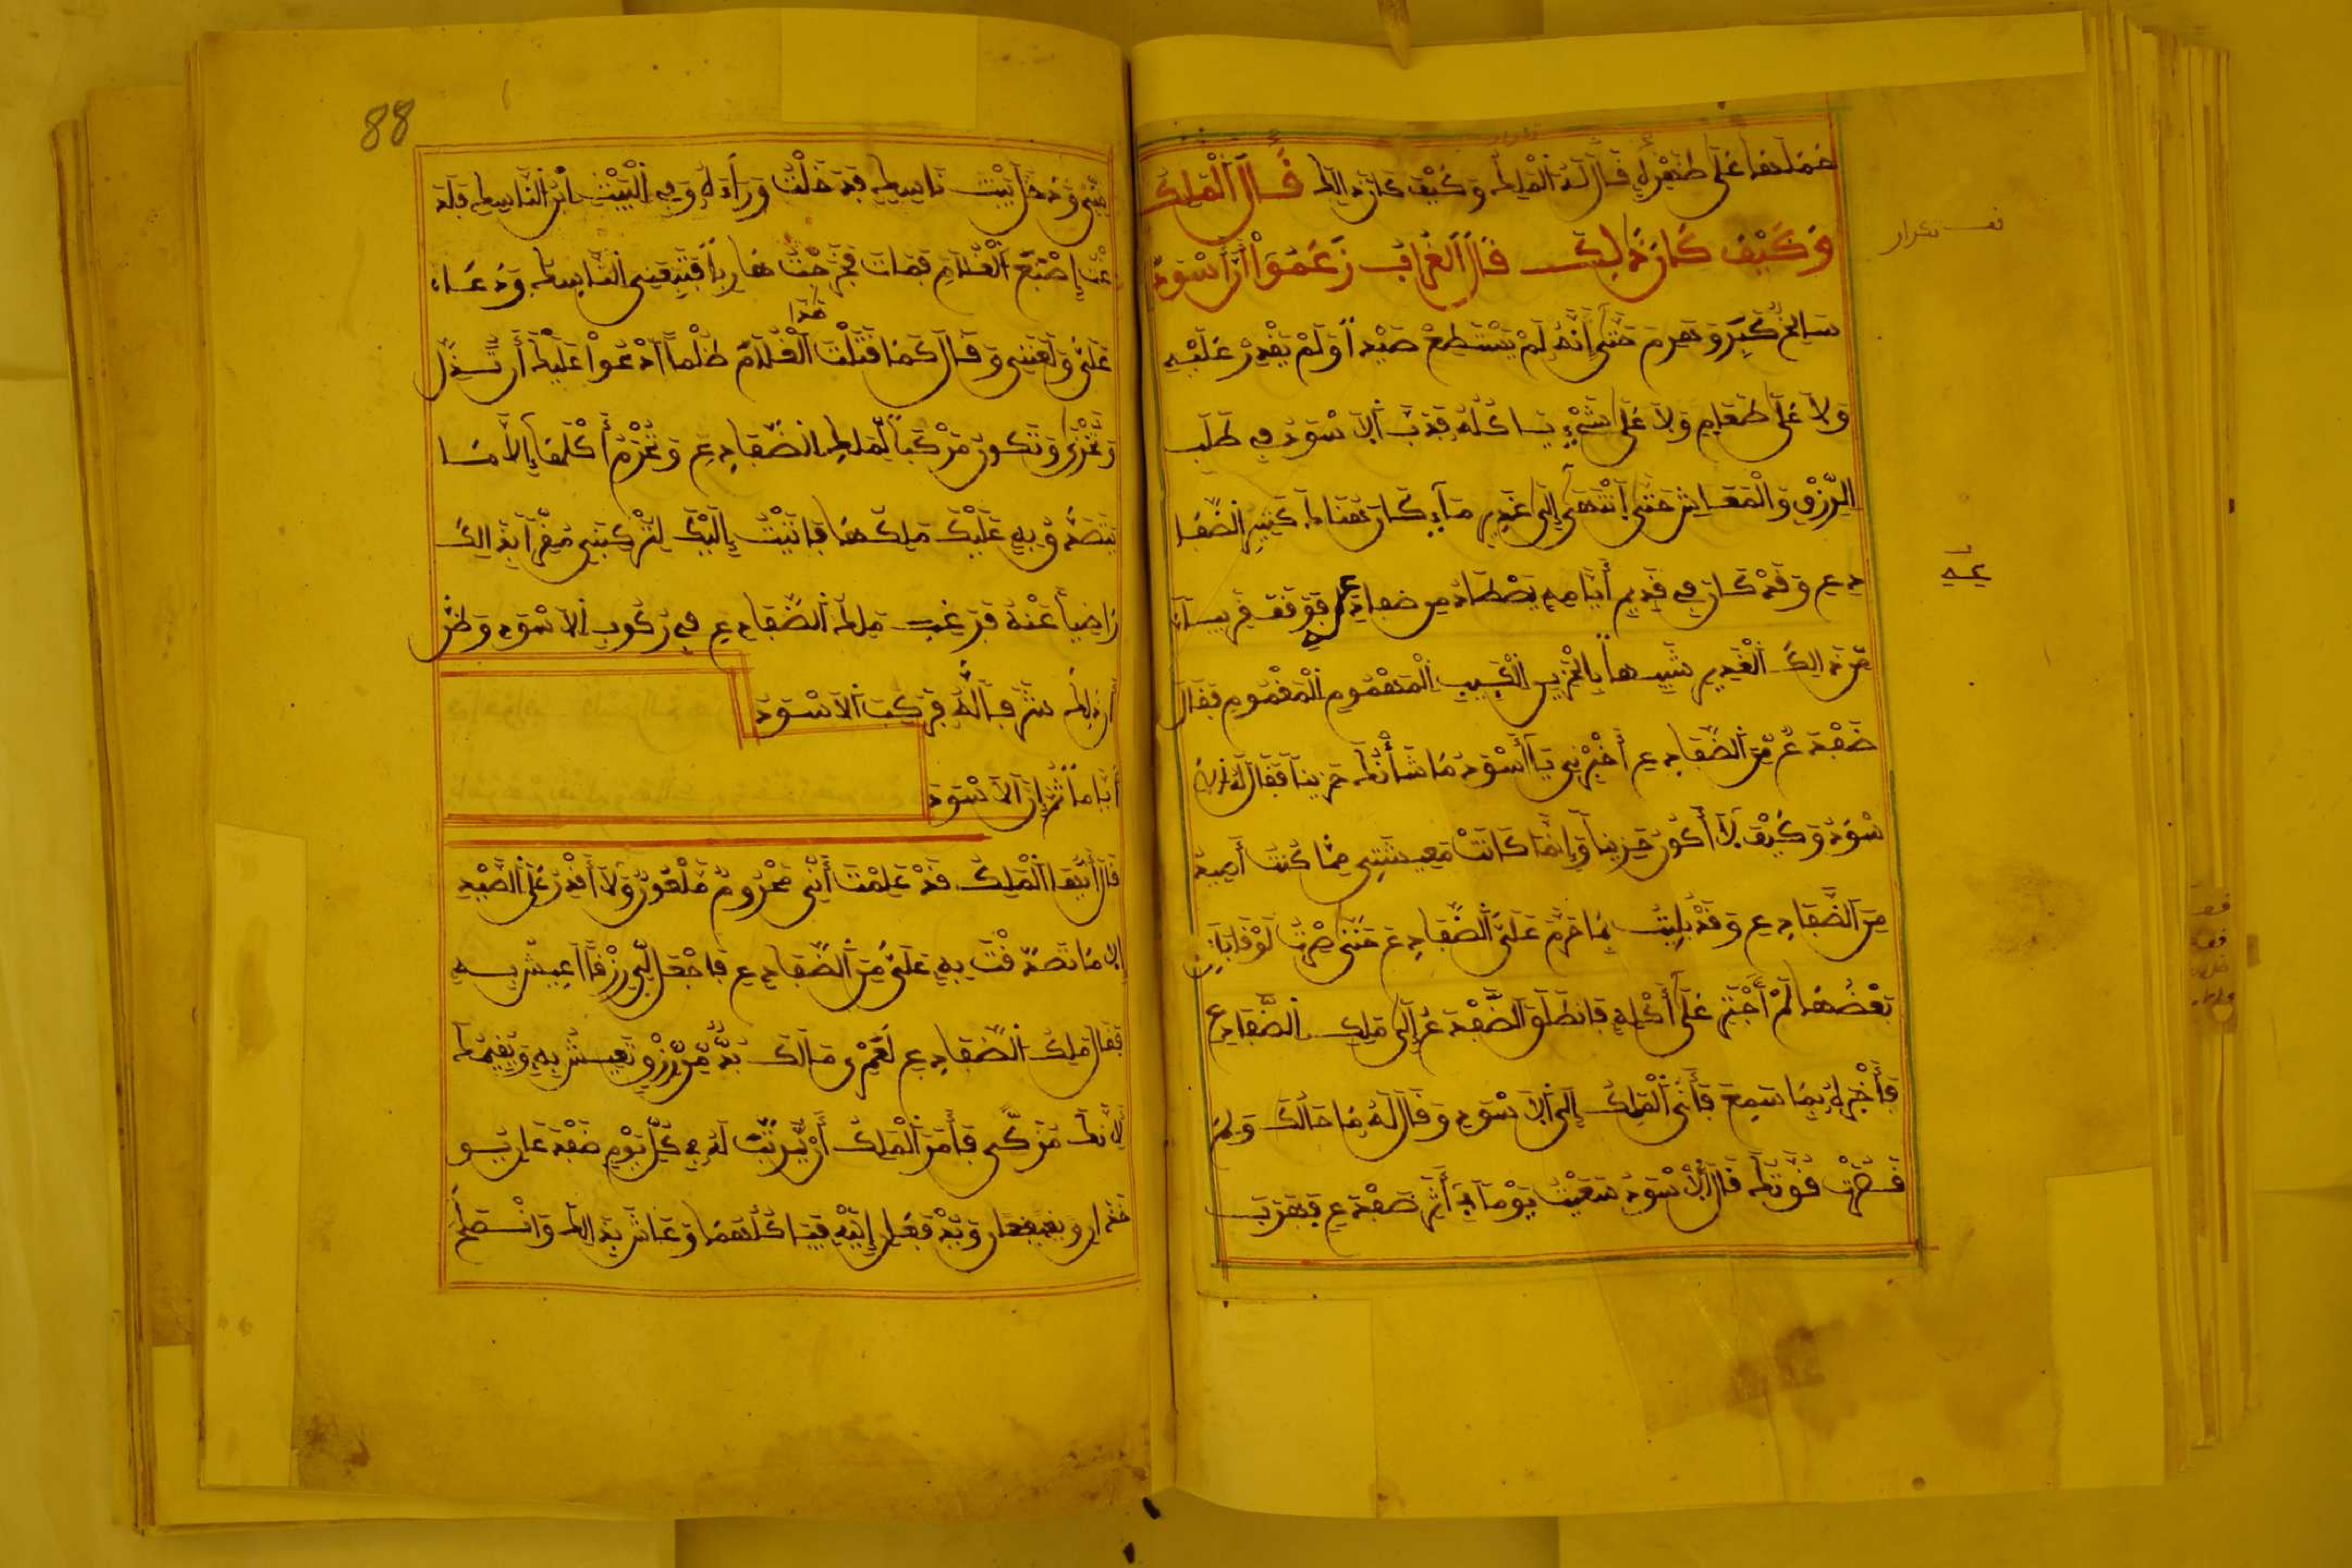 حملها على ظهره قال له الملك وكيف كان ذلك قال الملك
وكيف كان ذلك قال الغراب زعموا أن أسود
سالخ كبر وهرم حتى أنه لم يستطع صيدا ولم يقدر عليه
ولا على طعام ولا على شيء يأكله فدب الأسود في طلب
الرزق والمعاش حتى انتهى إلى غدير ماء كان هناك كثير الضفا
دع وقد كان في قديم أيامه يصطاد من ضفادعه فوقف قريبا
من ذالك الغدير شبيها بالحزين الكئيب المهموم المغموم فقال
ضفدع من الضفادع أخبرني يا أسود ما شأنك حزينا فقال له الأ
سود وكيف لا أكون حزينا وإنما كانت معيشتي مما كنت أصيد
من الضفادع وقد بليت بما حرم علي الضفادع حتى صرت لو
بعضها لم أجتر على أكله فانطلق الضفدع إلى ملك الضفادع
فأخبره بما سمع فأتى الملك إلى الأسود وقال له ما حالك ولم
قوتك قال الأسود سعيت يوما في أثر ضفدع فهرب
مني ودخل بيت ناسك فدخلت وراءه وفي البيت ابن الناسك فلد
غت إصبع الغلام فمات فخرجت هاربا فتبعني الناسك ودعا
علي ولعنني وقال كما قتلت الغلام هذا ظلما أدعوا عليك أن تذل
وتخزى وتكون مركبا لملك الضفادع وتحرم أكلها إلا ما
يتصدق به عليك ملكها فأتيت إليك لتركبني مقرا بذالك
راضيا عنه فرغب ملك الضفادع في ركوب الأسود وظن
أن ذلك شرفا له فركب الأسود
أياما ثم إن الأسود
قال أيها الملك قد علمت أني محروم ملعون ولا أقدر على الصيد
إلا ما تصدقت به علي من الضفادع فاجعل لي رزقا أعيش به
فقال ملك الضفادع لعمري مالك بد من رزق تعيش به ويقيمك
لأنك مركبي فأمر الملك أن يرتب له في كل يوم ضفدعان يو
خذان ويدفعان إليه فيأكلهما وعاش بذالك
88